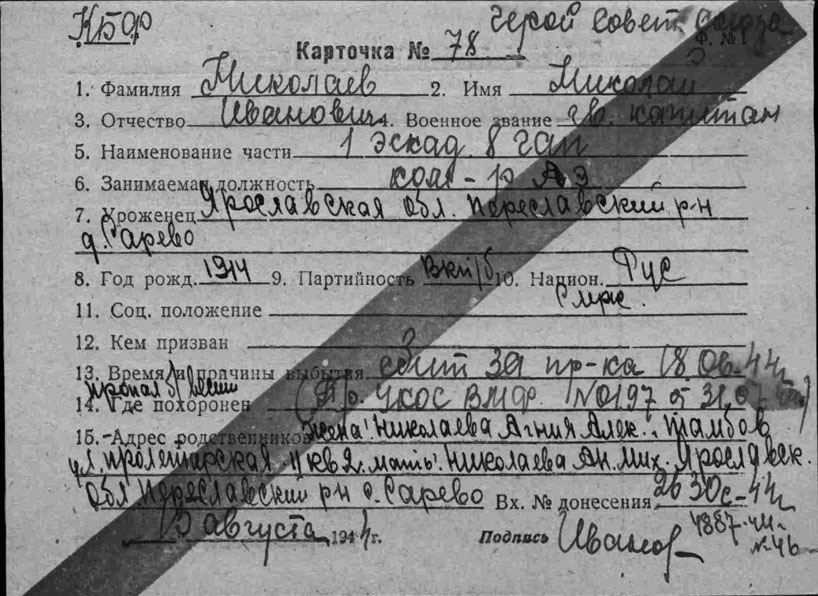 КБФ Герой Совет. Союза
Ф. №1
Карточка № 78
1. Фамилия Николаев 2. Имя Николай
3. Отчество Иванович 4. Военное звание гв. капитан
5. Наименование части 1 эскад. 8 гап
6. Занимаемая должность ком-р АЭ
7. Уроженец Ярославская обл. Переславский р-н
д. Сарево
8. Год рожд. 1914 9. Партийность ВКП/б 10. Национ. Рус
11. Соц. положение
12. Кем призван
13. Время и причины выбытия сбит за пр-ка 18 06-44г
пропал б/вести
14. Где похоронен (Пр. УКОС ВМФ. №0197 от 31.07
15. Адрес родственников жена: Николаева Агния Алек. Тамбов
ул. Пролетарская кв 2. мать: Николаева Ан. Мих. Ярославск.
обл. Переславский рн с. Сарево Вх. № донесения 2630с-44г
августа 1944г. Подпись Иванов
4887-44г
№46